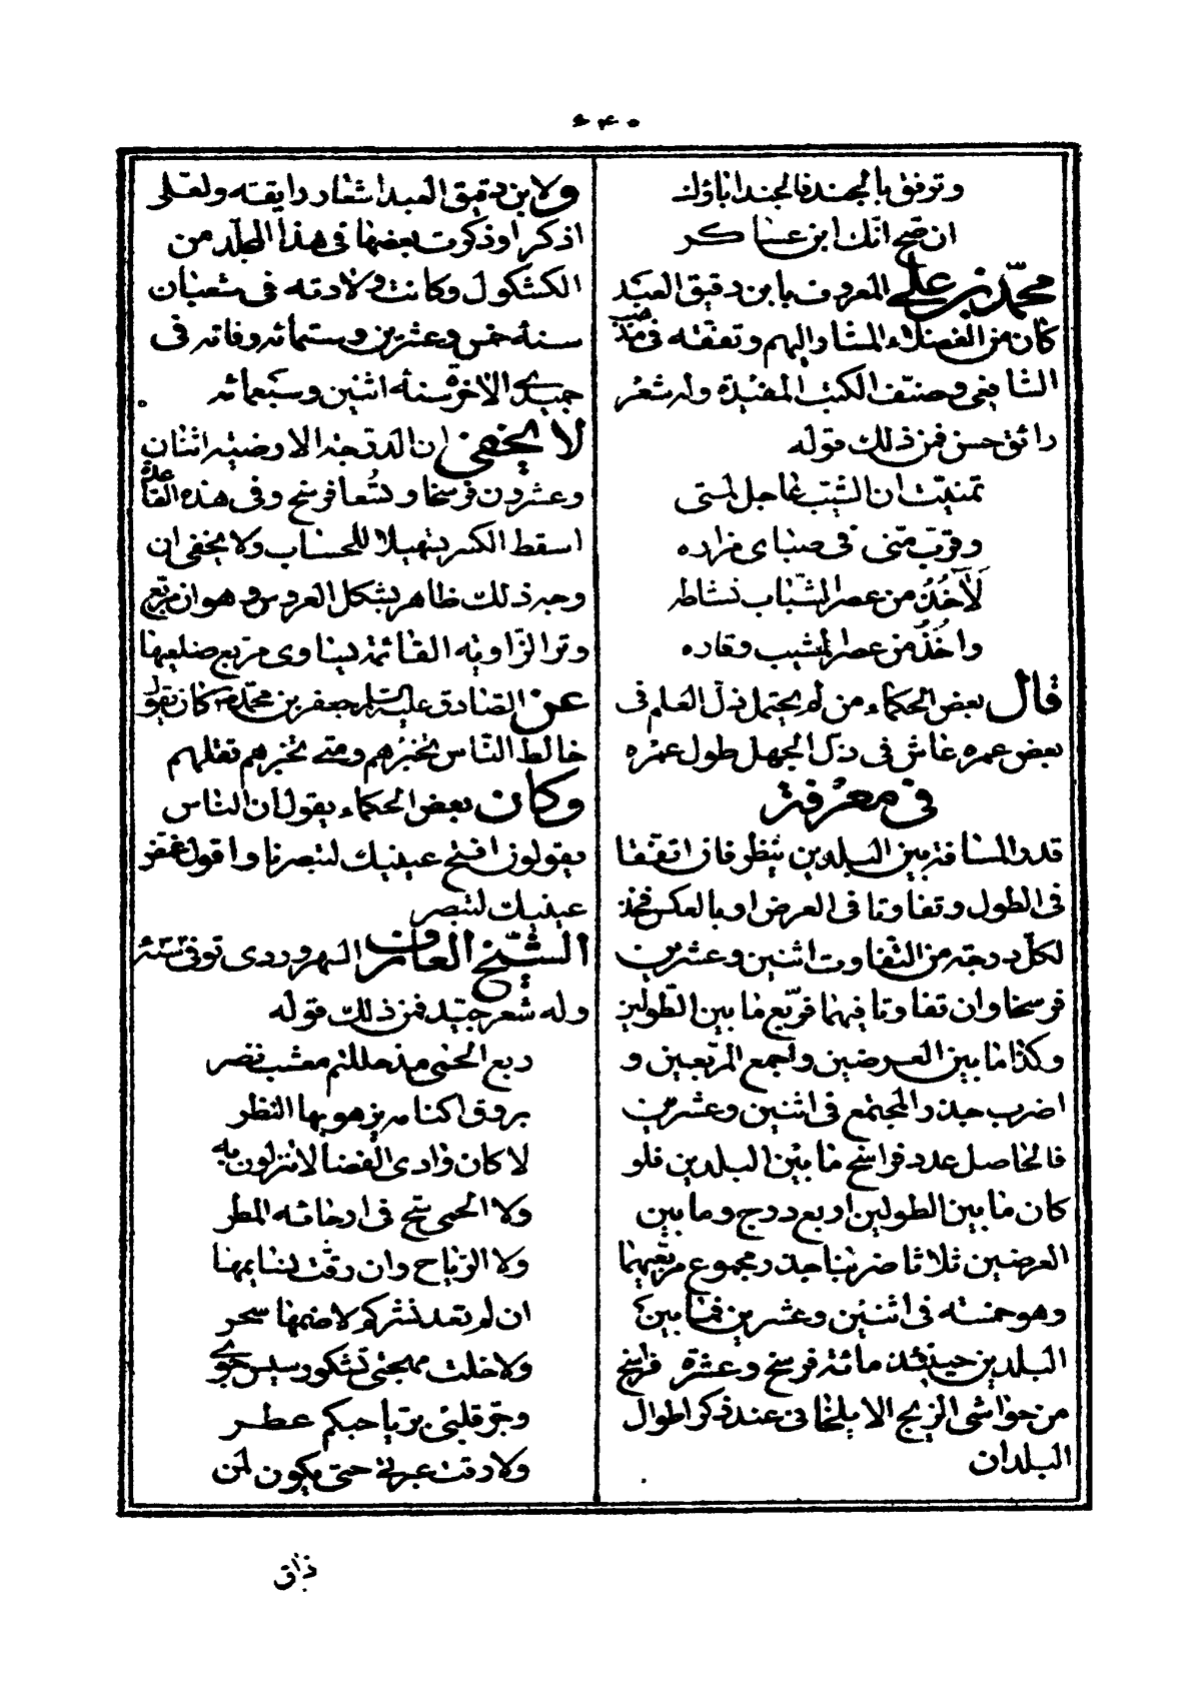 ٦٤٠
وترفق بالجند فالجند اباؤك
ان صح انّك ابن عساكر
محمّد بن علي المعروف بابن دقيق العيد
كان من الفضلاء المشار اليهم وتفقه فى مذهب
الشافعي وصنّف الكتب المفيدة وله شعر
رائق حسن فمن ذلك قوله
تمنيت ان الشيب عاجل لمتى
وقرب منّى فى صباى مزاره
لآخذ من عصر الشّباب نشاطه
واخذ من عصر المشيب وقاره
قال بعض الحكماء من لم يحتمل ذلّ العلم فى
بعض عمره عاش فى ذلّ الجهل طول عمره
فى معرفة
قدر المسافة بين البلدين ينظر فان اتفقا
فى الطول وتفاوتا فى العرض او بالعكس فخذ
لكل درجة من التفاوت اثنين وعشرين
فرسخا وان تفاوتا فيهما فربّع ما بين الطولين
وكذا ما بين العرضين واجمع المربّعين و
اضرب جذر المجتمع فى اثنين وعشرين
فالحاصل عدد فراسخ ما بين البلدين فلو
كان ما بين الطولين اربع درج وما بين
العرضين ثلاثا ضربنا جذر مجموع مربّعيهما
وهو خمسة فى اثنين وعشرين فما بين
البلدين حينئذ مائة فرسخ وعشرة فراسخ
من حواشى الزيج الايلخانى عند ذكر اطوال
البلدان
ولابن دقيق العيد اشعار رايقة ولعلى
اذكر او ذكرت بعضها فى هذا المجلّد من
الكشكول وكانت ولادته فى شعبان
سنة خمس وعشرين وستمائه وفاته فى
جميدى الاخرة سنة اثنين وسبعمائه
لا يخفى ان الدرجة الارضيه اثنان
وعشرون فرسخا وتسعا فرسخ وفى هذه القاعدة
اسقط الكسر تسهيلا للحساب ولا يخفى ان
وجه ذلك ظاهر بشكل العروس وهو ان مربّع
وتر الزّاوية القائمة يساوى مربّع ضلعيها
عن الصّادق عليه السلم جعفر بن محمّد كان يقول
خالط النّاس تخبرهم ومتى تخبرهم تقلهم
وكان بعض الحكماء يقول ان الناس
يقولون افتح عينيك لتبصرنا واقول غمّض
عينيك لتبصر
الشيخ العارف السهروردى توفى سنة
وله شعر جيّد فمن ذلك قوله
ربع الحمى مذ حللتم معشب نضر
يروق اكنافه يزهو بها النظر
لا كان وادى الغضا لا تنزلون به
ولا الحمى سح فى ارجائه المطر
ولا الرياح وان رقت نسايمها
ان لم تفد نشركم لا ضمّها سحر
ولا خلت مهجتى تشكو رسيس جوى
وحرّ قلبى بريّا حبكم عطر
ولا رقت عبرتى حتى يكون لمن
ذاق